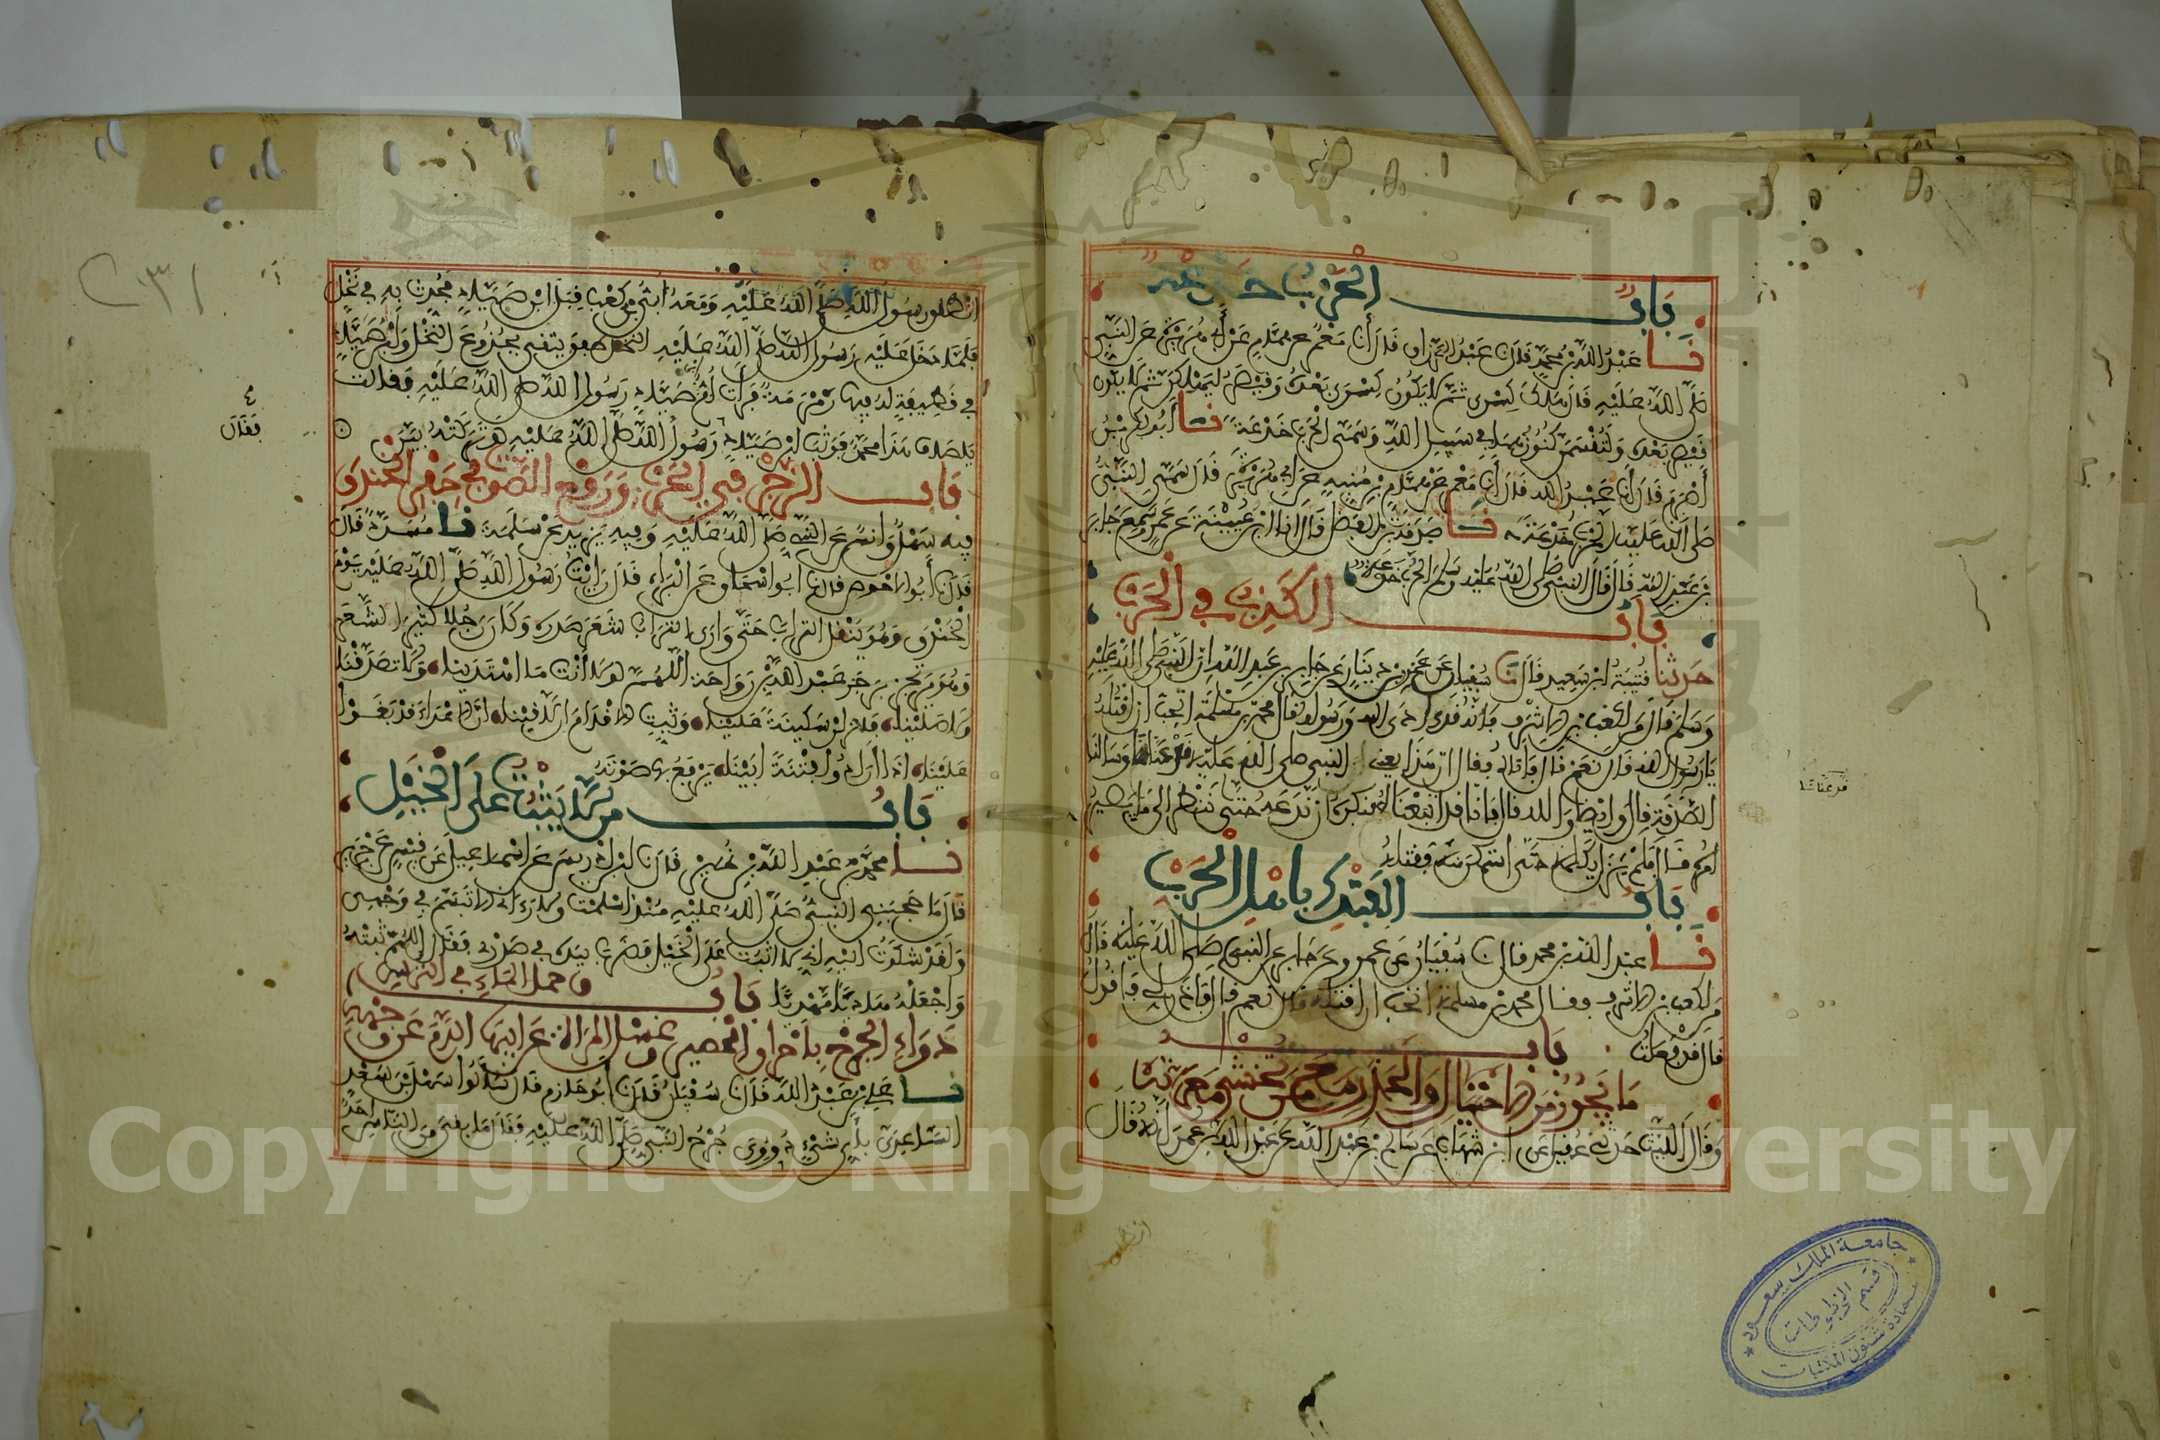 باب الحرب خدعة
نا عبد الله بن محمد قال نا عبد الرزاق قال أنا معمر عن همام عن أبي هريرة عن النبي
صلى الله عليه قال هلك كسرى ثم لا يكون كسرى بعده وقيصر ليهلكن ثم لا يكون
قيصر بعده ولتقسمن كنوزهما في سبيل الله وسمى الحرب خدعة نا أبو بكر بن
أصرم قال أنا عبد الله قال أنا معمر عن همام بن منبه عن أبي هريرة قال سمى النبي
صلى الله عليه الحرب خدعة نا صدقة بن الفضل قال انا ابن عيينة عن عمرو سمع جابر
بن عبد الله قال قال النبي صلى الله عليه وسلم الحرب خدعة
باب الكذب في الحرب
حدثنا قتيبة ابن سعيد قال نا سفيان عن عمرو بن دينار عن جابر بن عبد الله ان النبي صلى الله عليه
وسلم قال من لكعب بن الاشرف فانه قد اذى الله ورسوله قال محمد بن مسلمة اتحب ان اقتله
يا رسول الله قال نعم قال فاتاه فقال ان هذا يعني النبي صلى الله عليه قد عنانا وسالنا
الصدقة قال وايضا والله قال فانا قد اتبعناه فنكره ان ندعه حتى ننظر الى ما يصير
امره قال فلم يزل يكلمه حتى استمكن منه فقتله
باب الفتك باهل الحرب
نا عبد الله بن محمد قال نا سفيان عن عمرو عن جابر عن النبي صلى الله عليه قال
من لكعب بن الاشرف فقال محمد بن مسلمة اتحب ان اقتله قال نعم قال فاذن لي فاقول
قال قد فعلت
باب
ما يجوز من الاحتيال والحذر مع من يخشى معرته
وقال الليث حدثني عقيل عن ابن شهاب عن سالم بن عبد الله عن عبد الله بن عمر انه قال
قد عنانا
جامعة الملك سعود
قسم المخطوطات
عمادة شئون المكتبات
انطلق رسول الله صلى الله عليه ومعه ابي بن كعب قبل ابن صياد فحدث به في نخل
فلما دخل عليه رسول الله صلى الله عليه النخل طفق يتقي بجذوع النخل وابن صياد
في قطيفة له فيها رمرمة فرات ام صياد رسول الله صلى الله عليه فقالت
يا صاف هذا محمد فوثب ابن صياد رسول الله صلى الله عليه لو تركته بين
باب الرجز في الحرب ورفع الصوت في حفر الخندق
فيه سهل وانس عن النبي صلى الله عليه وفيه يزيد عن سلمة نا مسدد قال
قال نا أبو الاحوص قال نا ابو اسحاق عن البراء قال رايت رسول الله صلى الله عليه يوم
الخندق وهو ينقل التراب حتى وارى التراب شعر صدره وكان رجلا كثير الشعر
وهو يرتجز برجز عبد الله بن رواحة اللهم لولا أنت ما اهتدينا ولا تصدقنا
ولا صلينا فانزلن سكينة علينا وثبت الاقدام ان لاقينا ان الاعداء قد بغوا
علينا اذا ارادوا فتنة ابينا يرفع بها صوته
باب من لا يثبت على الخيل
نا محمد بن عبد الله بن نمير قال نا ابن ادريس عن اسماعيل عن قيس عن جرير
قال ما حجبني النبي صلى الله عليه منذ اسلمت ولا راني الا تبسم في وجهي
ولقد شكوت اليه اني لا اثبت على الخيل فضرب بيده في صدري فقال اللهم ثبته
واجعله هاديا مهديا باب وحمل الماء في الترس
دواء الجرح باحراق الحصير وغسل المراة عن ابيها الدم عن وجهه
نا علي بن عبد الله قال نا سفيان قال نا أبو حازم قال سالوا سهل بن سعد
الساعدي باي شيء دووي جرح النبي صلى الله عليه فقال ما بقي من الناس احد
فقال
٢٣١
Copyright © King Saud University